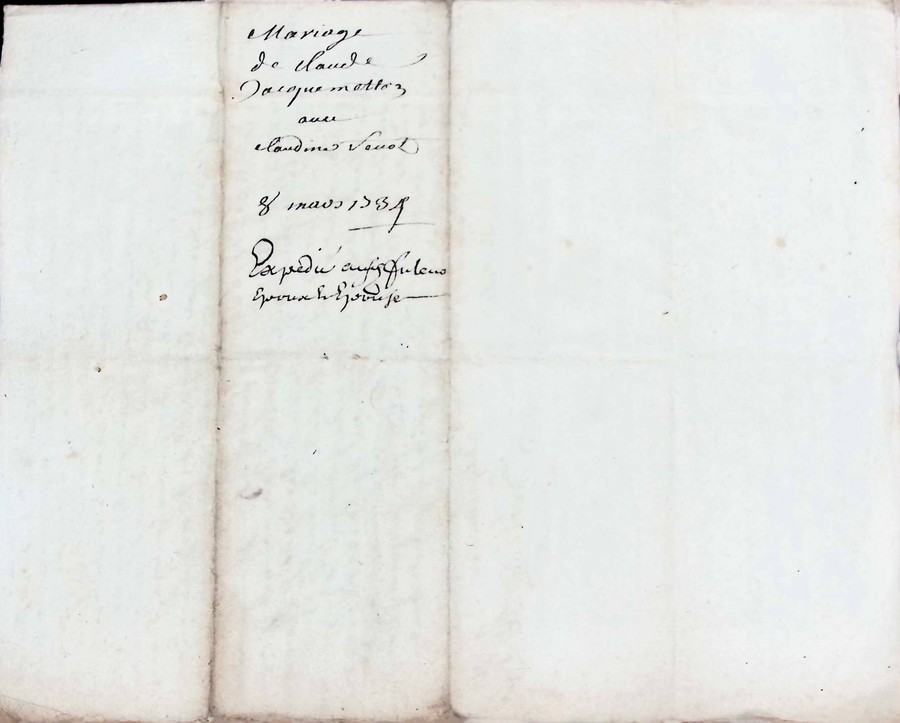 Mariage
de Claude
Jacquemetton
avec
Claudine
8 mars
Expedié aux futeurs
Epoux & Epouse